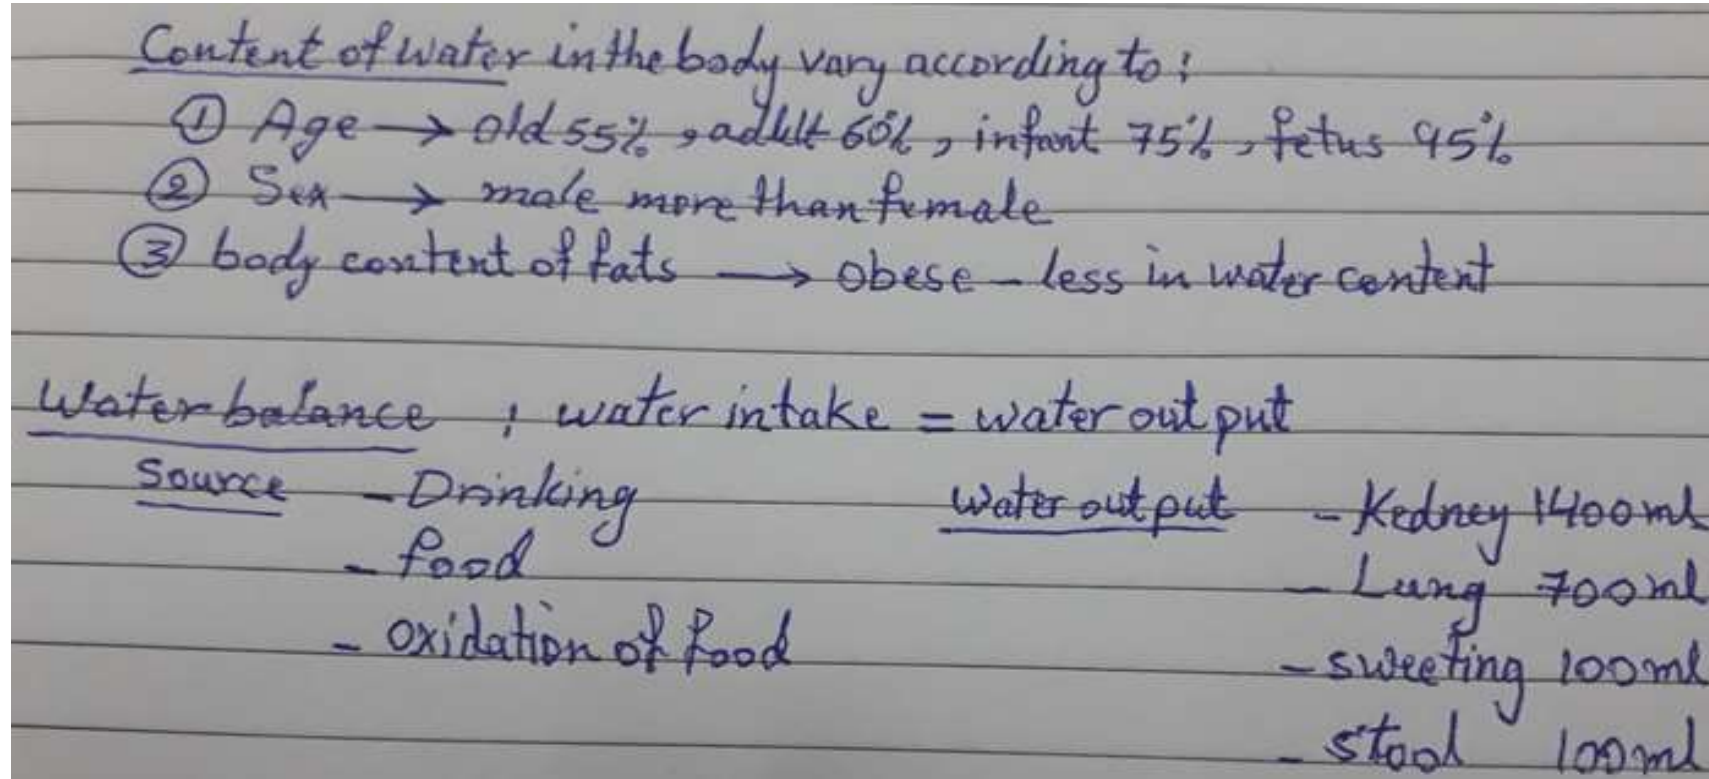 Content of water in the body vary according to:
① Age → old 55%, adult 60%, infant 75%, fetus 95%
② Sex → male more than female
③ body content of fats → obese - less in water content
Water balance : water intake = water out put
Source - Drinking water out put - Kedney 1400ml
- food - Lung 700ml
- oxidation of food - sweeting 100ml
- stool 100ml